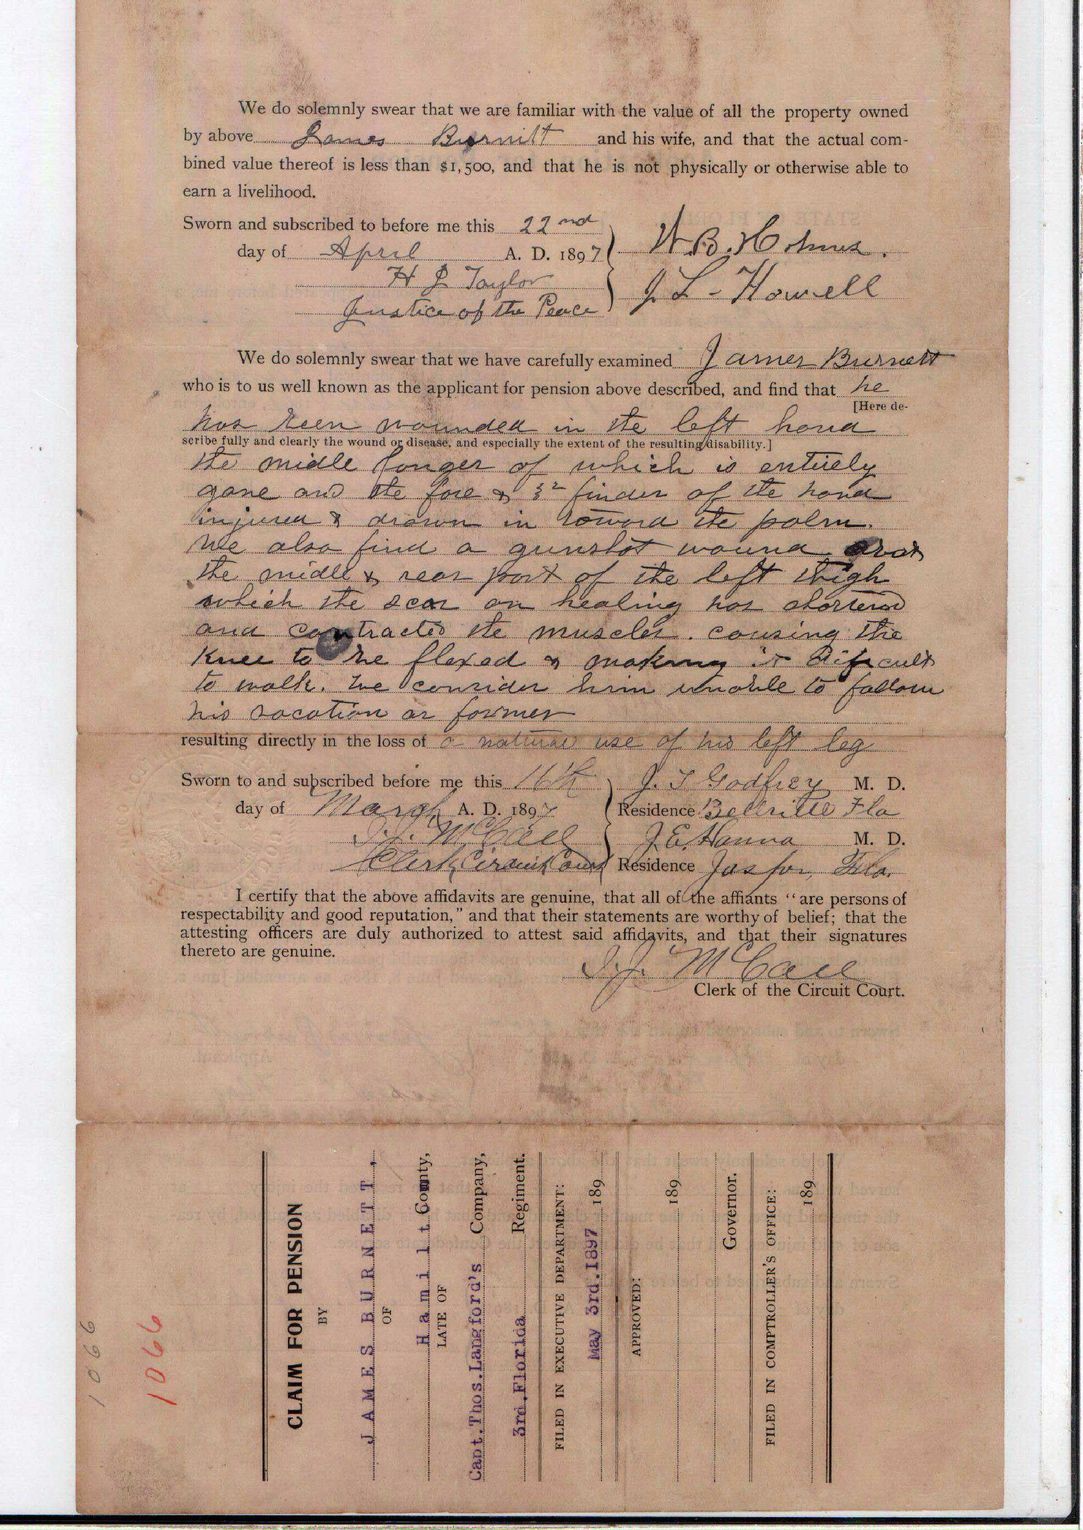 We do solemnly swear that we are familiar with the value of all the property owned
by above James Burnitt and his wife, and that the actual com-
bined value thereof is less than $1,500, and that he is not physically or otherwise able to
earn a livelihood.
Sworn and subscribed to before me this 22nd
day of April A. D. 1897
H J Taylor
Justice of the Peace
W. B. Holmes.
J L - Howell
We do solemnly swear that we have carefully examined James Burnett
who is to us well known as the applicant for pension above described, and find that he
[Here de-
has been wounded in the left hand
scribe fully and clearly the wound or disease, and especially the extent of the resulting disability.]
the midle fonger of which is entirely
gone and the fore & 3rd finder of the hand
injured & drawn in toward the palm.
We also find a gunshot wound
the midle & rear part of the left thigh
which the scar on healing has shortened
and contracted the muscles. causing the
Knee to be flexed & making it dificult
to walk. We consider him unable to follow
his vocation as farmer
resulting directly in the loss of a natural use of his left leg
Sworn to and subscribed before me this 16th
day of March A. D. 1897
J. J. McCall
Clerk Circuit Court
J. T Godfrey M. D.
Residence Bellville Fla
J. E. Hanna M. D.
Residence Jasper, Fla.
I certify that the above affidavits are genuine, that all of the affiants "are persons of
respectability and good reputation," and that their statements are worthy of belief; that the
attesting officers are duly authorized to attest said affidavits, and that their signatures
thereto are genuine.
J. J. McCall
Clerk of the Circuit Court.
1066
1066
CLAIM FOR PENSION
BY
JAMES BURNETT,
OF
Hamilton County,
LATE OF
Capt. Thos. Langford's Company,
3rd. Florida Regiment.
FILED IN EXECUTIVE DEPARTMENT:
May 3rd. 1897 189
APPROVED:
189
Governor.
FILED IN COMPTROLLER'S OFFICE:
189